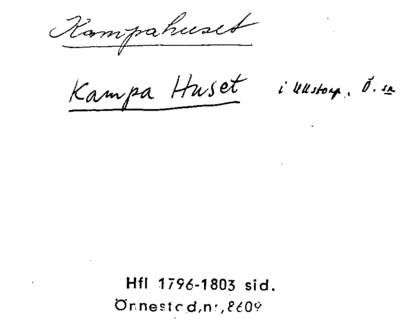 Kampahuset
Kampa Huset i Ullstorp, Ö. sn
Hfl 1796-1803 sid.
Önnestad,nr,8609